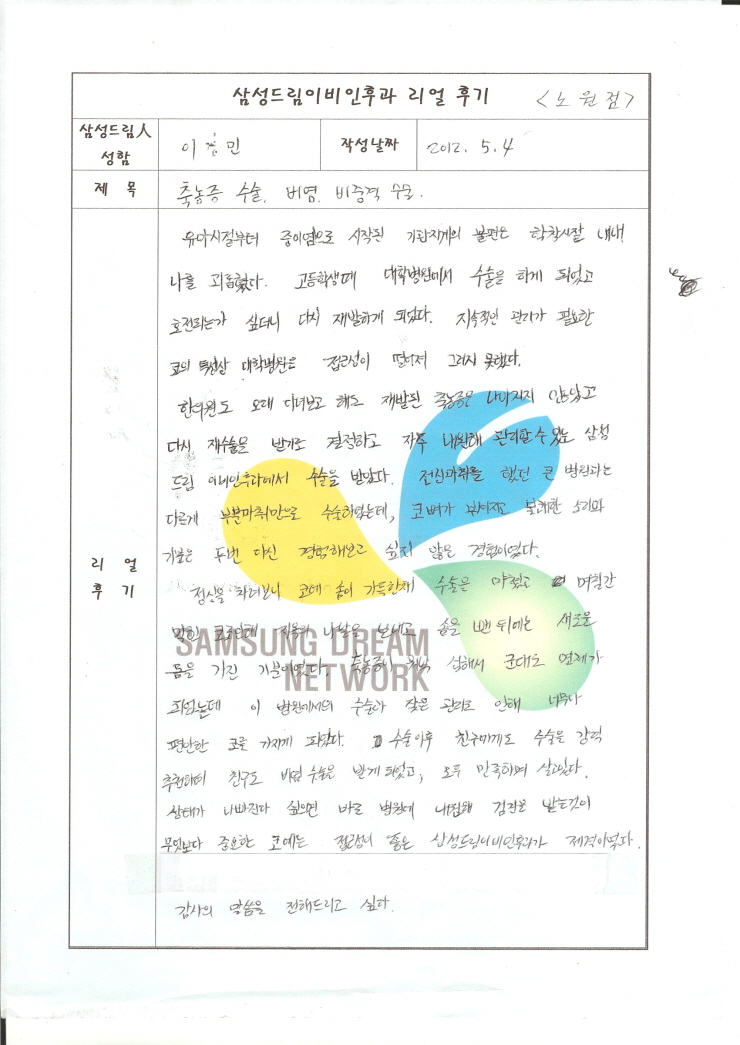 삼성드림이비인후과 리얼 후기 <노원점>
삼성드림人 성함
이 민
작성날짜
2012. 5. 4
제 목
축농증 수술, 비염, 비중격 수술.
리 얼 후 기
유아시절부터 중이염으로 시작된 기관지계의 불편은 학창시절 내내
나를 괴롭혔다. 고등학생때 대학병원에서 수술을 하게 되었고
호전되는가 싶더니 다시 재발하게 되었다. 지속적인 관리가 필요한
코의 특성상 대학병원은 접근성이 떨어져 그러지 못했다.
한의원도 오래 다녀보고 해도 재발된 축농증은 나아지지 않았고
다시 재수술을 받기로 결정하고 자주 내원해 관리할 수 있는 삼성
드림 이비인후과에서 수술을 받았다. 전신마취를 했던 큰 병원과는
다르게 부분마취만으로 수술하였는데, 코뼈가 부서지고 불쾌한 소리와
기분은 두번 다신 경험해보고 싶지 않은 경험이였다.
정신을 차려보니 코에 솜이 가득한채 수술은 마쳤고 며칠간
막힌 코로인해 지옥의 나날을 보내고 솜을 뺀 뒤에는 새로운
몸을 가진 기분이었다. 축농증이 심해서 군대도 면제가
되었는데 이 병원에서의 수술과 잦은 관리로 인해 너무나
편안한 코를 가지게 되었다. 수술이후 친구에게도 수술을 강력
추천하여 친구도 비염 수술을 받게 되었고, 모두 만족하며 살고있다.
상태가 나빠진다 싶으면 바로 병원에 내원해 검진을 받는것이
무엇보다 중요한 코에는 접근성이 좋은 삼성드림이비인후과가 제격이였다.
감사의 말씀을 전해드리고 싶다.
SAMSUNG DREAM
NETWORK